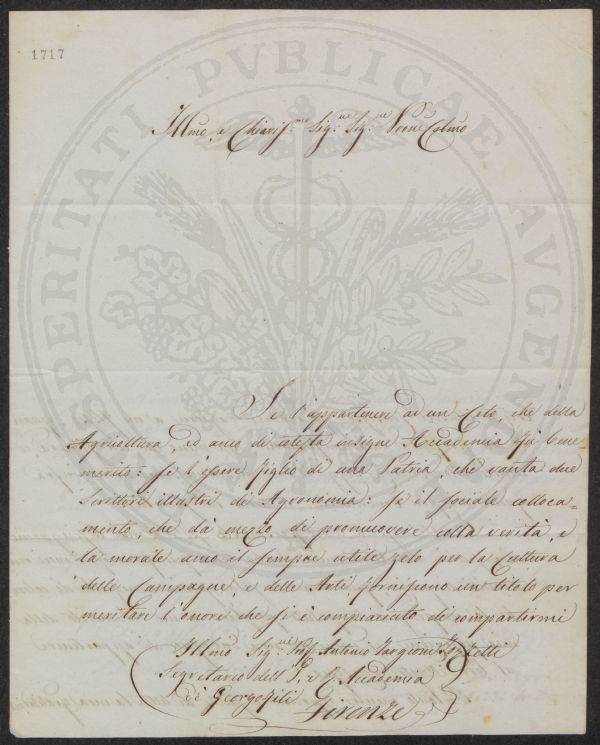 1717
PROSPERITATI PVBLICAE AVGENDAE
Illmo, e Chiaris.mo Sig.re Sig.re Prone Colmo
Se l'appartenere ad un Ceto, che della
Agricoltura, ed anco di cotesta insigne Accademia fù bene
merito: se l'essere figlio di una Patria, che vanta due
Scrittori illustri di Agronomia: se il sociale colloca=
mento, che dà mezzo di promuovere colla verità, e
la morale anco il sempre utile zelo per la Cultura
delle Campagne, e delle Arti fornissero un titolo per
meritare l'onore che si è compiaciuto di compartirmi
Illmo Sig.re Prof. Antonio Targioni Tozzetti
Segretario dell'I. e R. Accademia
dè Georgofili Firenze